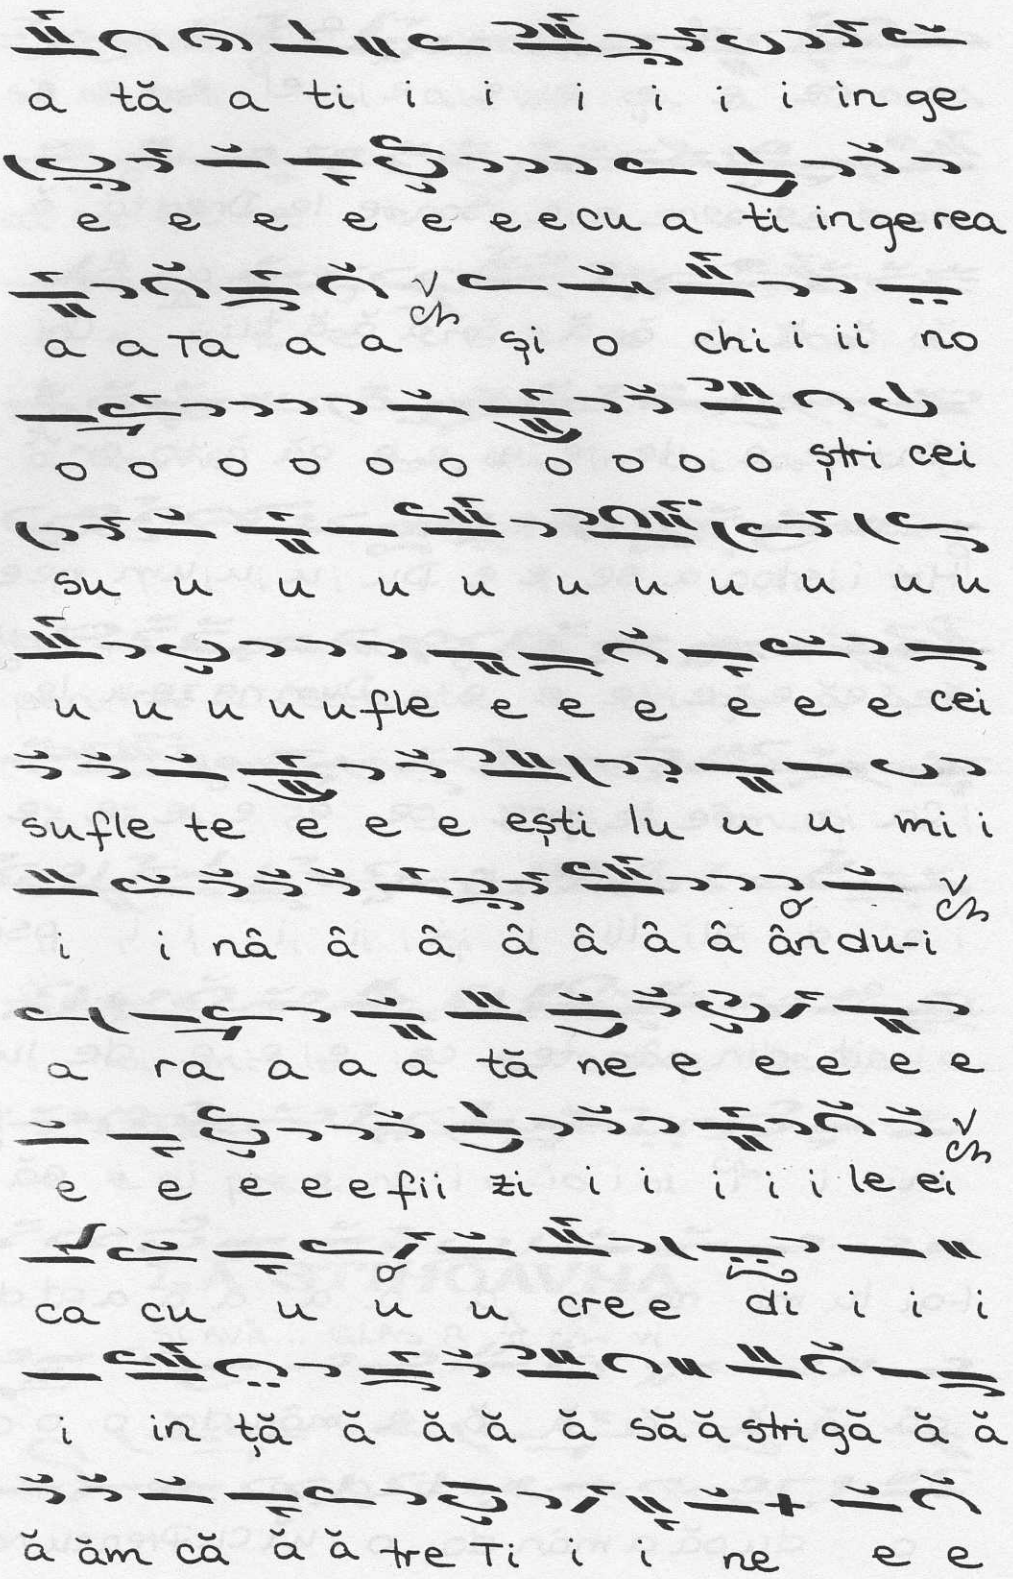 a tă a ti i i i i i i in ge
e e e e e e e cu a ti in ge rea
a a Ta a a și o chi i ii no
o o o o o o o o o o ștri cei
su u u u u u u u u u u
u u u u u fle e e e e e e cei
su fle te e e e ești lu u u mi i
i i nâ â â â â â â ân du-i
a ra a a a tă ne e e e e e
e e e e e fii zi i i i i i le ei
ca cu u u u cre e di i i i
i in ță ă ă ă ă să ă stri gă ă ă
ă ăm că ă ă tre Ti i i ne e e